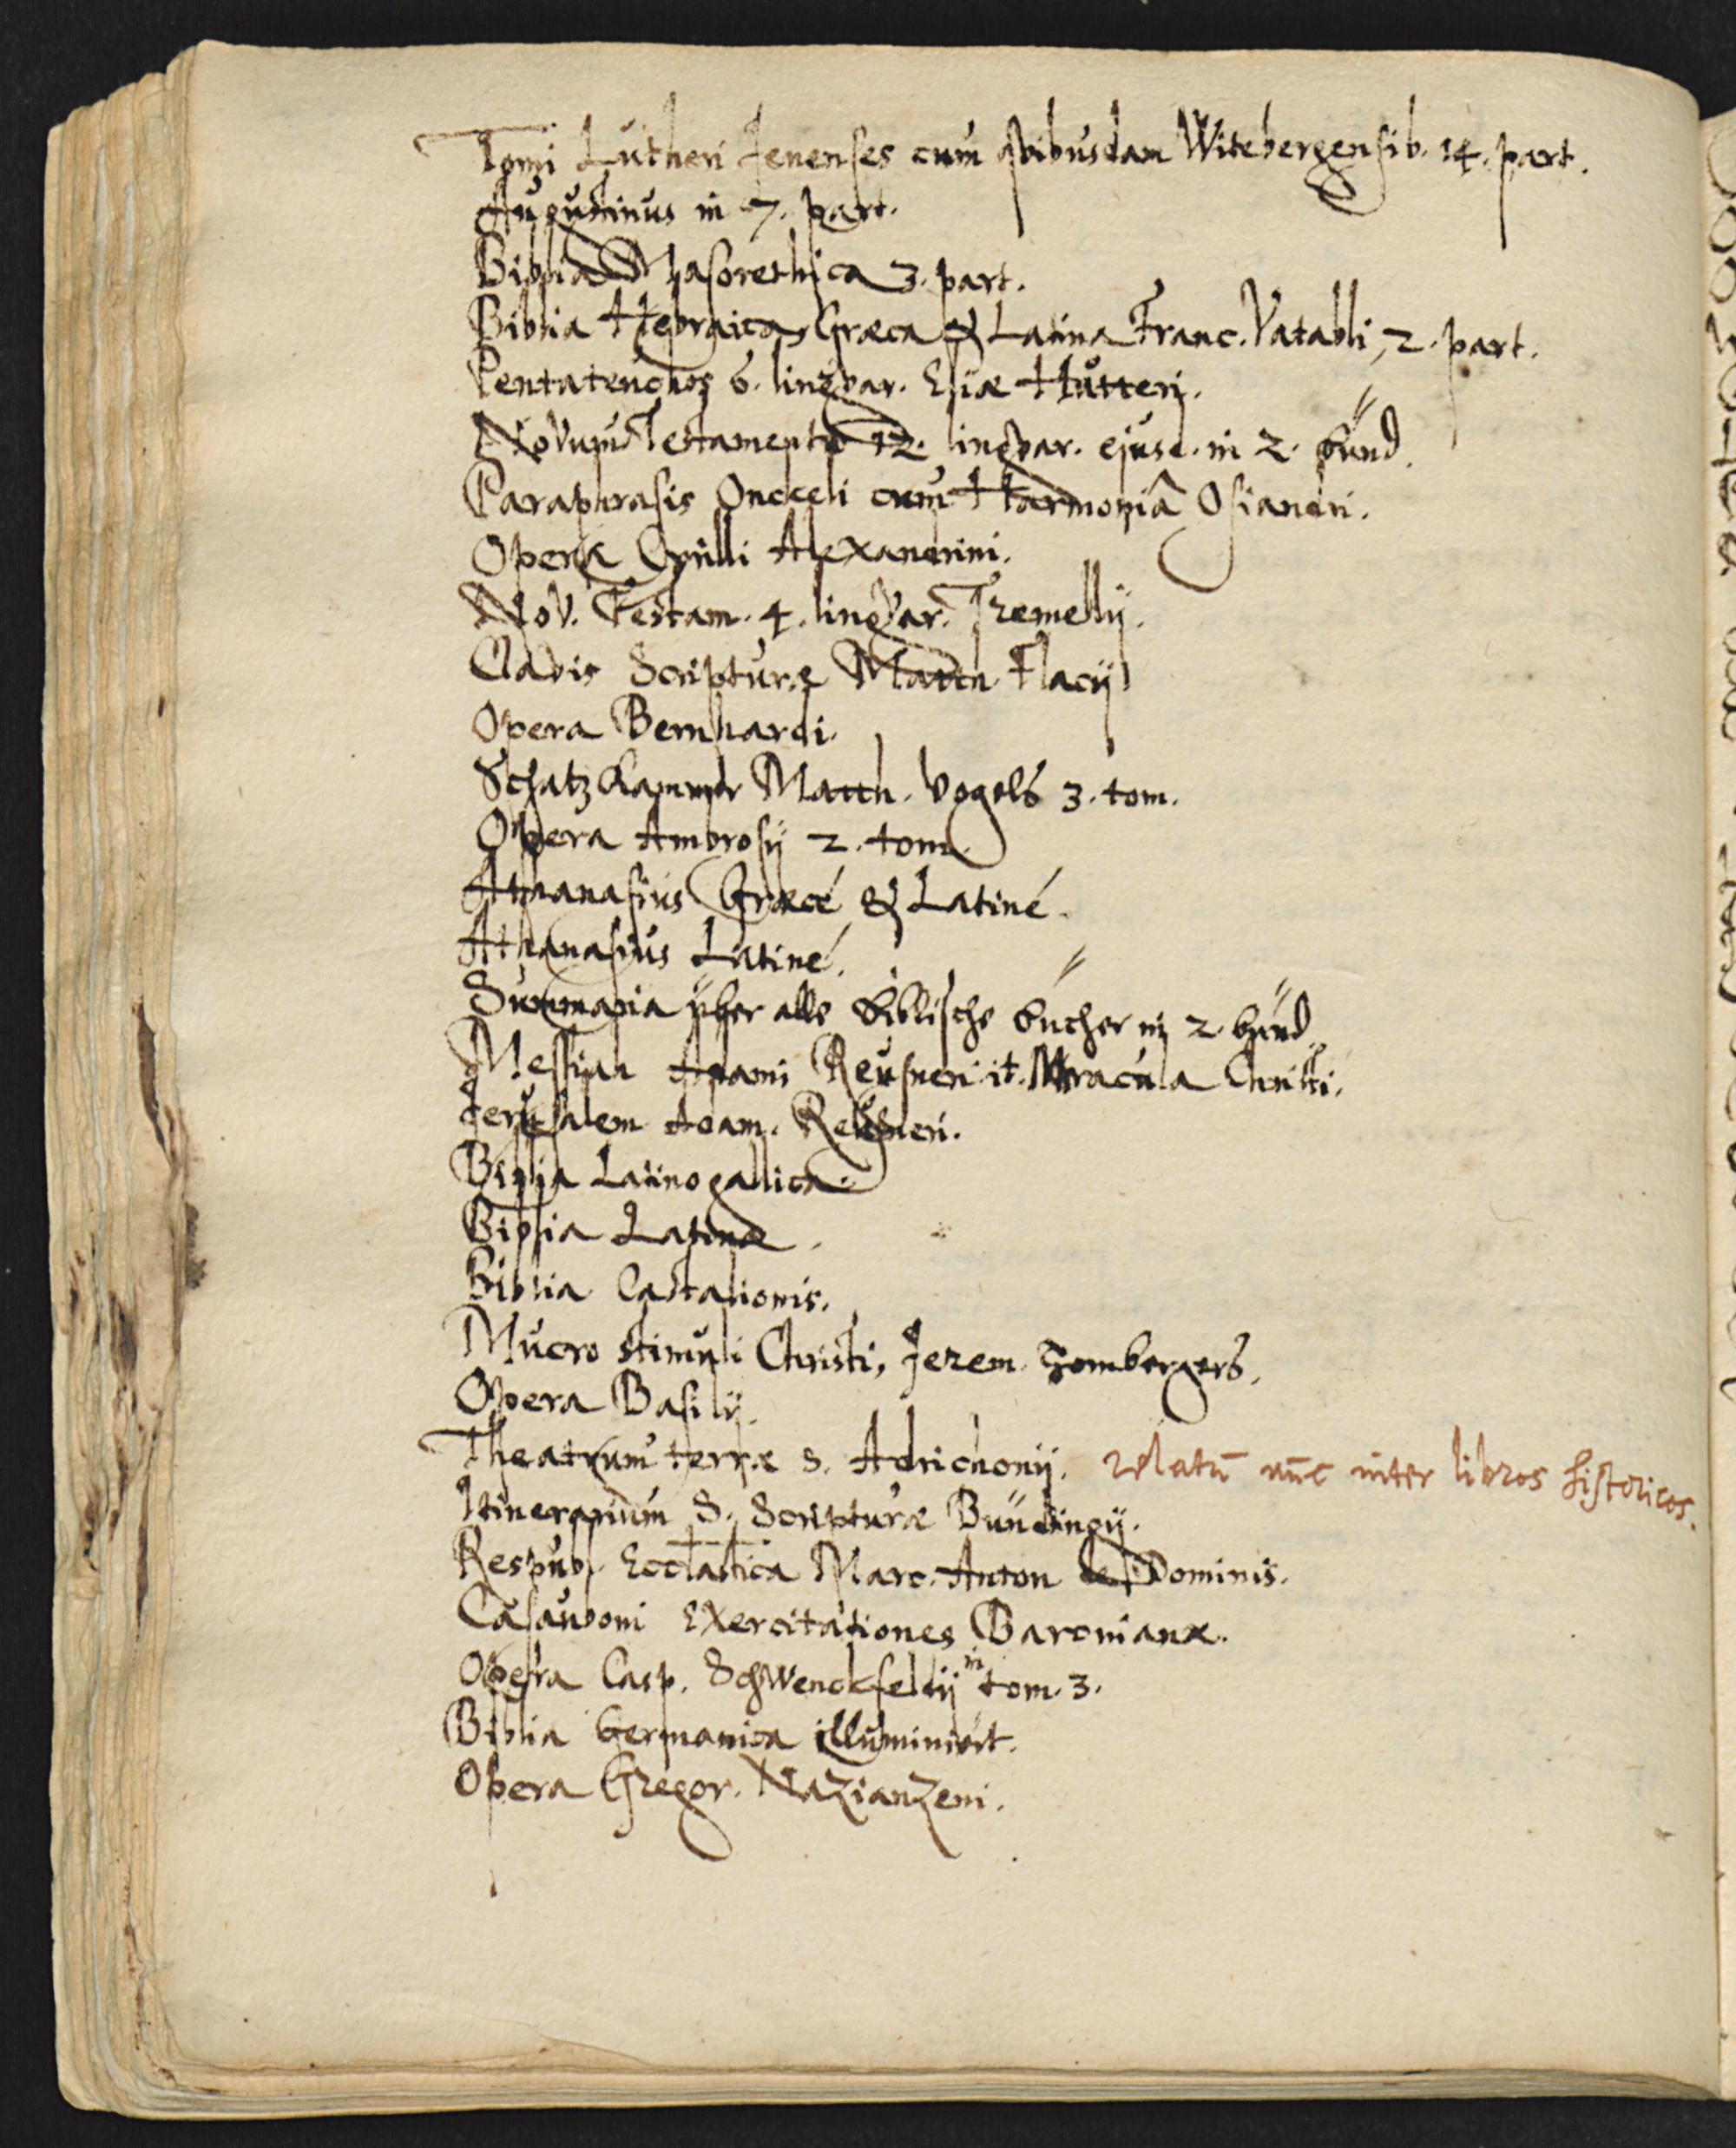 Tomi Lutheri Jenenses cum qvibusdam Witebergensib. 14. part.
Augustinus in 7. part.
Biblia Masorethica 3. part.
Biblia Hebraica, Græca & Latina Franc. Vatabli, 2. part.
Pentateuchos 6. lingvar. Eliæ Hutteri.
Novum Testamentū 12. lingvar. ejusd. in 2. bünd.
Paraphrasis Onckeli cum Harmoniâ Osiandri.
Opera Cyrilli Alexandrini.
Nov. Testam. 4. lingvar. Tremellij.
Clavis Scripturæ Matth. Flacij
Opera Bernhardi.
Schatz Kammer Matth. Vogels 3. tom.
Opera Ambrosij 2. tom.
Athanasius Græcé & Latiné.
Athanasius Latiné.
Summaria über alle Biblische bücher in 2. bünd.
Messian Adami Reusneri it. Miracula Christi.
Jerusalem Adam. Reusneri.
Biblia Latinogallica.
Biblia Latina.
Biblia Castalionis.
Mucro stimuli Christi, Jerem. Hombergers.
Opera Basilij.
Theatrum terræ S. Adrichonij. relatū nūc inter libros historicos.
Itinerarium S. Scripturæ Büntingij.
Respub. Ecclastica Marc. Anton de Dominis.
Casauboni Exercitationes Baronianæ.
Opera Casp. Schwenckfeldij in tom. 3.
Biblia Germanica illuminirt.
Opera Gregor. Nazianzeni.